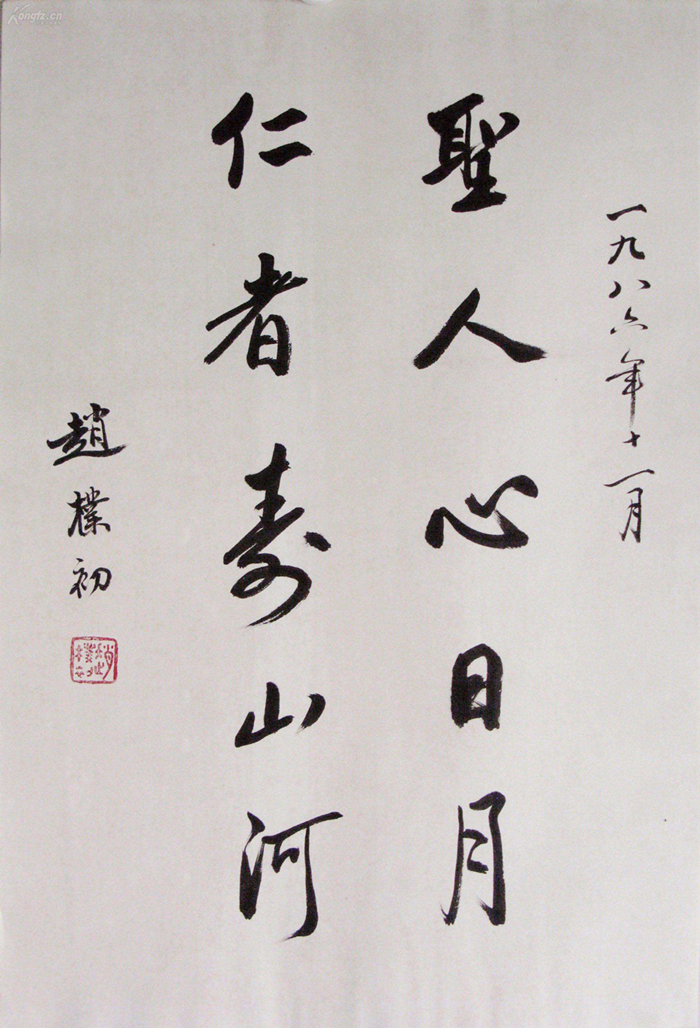 一九八六年十一月
聖人心日月
仁者寿山河
趙樸初
Kongfz.cn